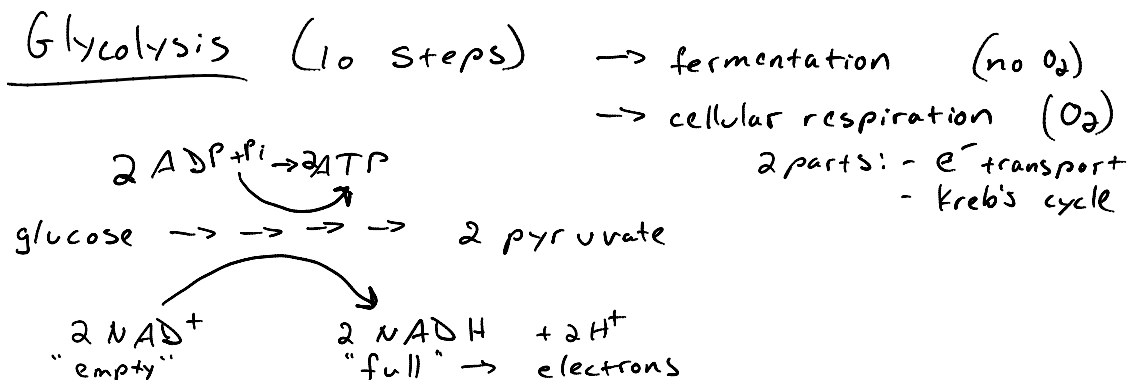 Glycolysis (10 steps) → fermentation (no O₂)
→ cellular respiration (O₂)
2 parts: - e⁻ transport
- Kreb's cycle
2 ADP+Pi → 2ATP
glucose → → → → 2 pyruvate
2 NAD⁺ 2 NADH + 2H⁺
"empty" "full" → electrons